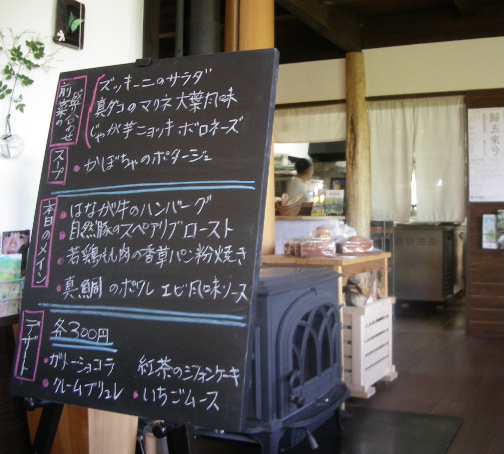 前菜の盛り合わせ
ズッキーニのサラダ
真ダコのマリネ 大葉風味
じゃが芋ニョッキ ボロネーズ
スープ
・かぼちゃのポタージュ
本日のメイン
・はなが牛のハンバーグ
・自然豚のスペアリブロースト
・若鶏もも肉の香草パン粉焼き
・真鯛のポワレ エビ風味ソース
デザート
各300円
・ガトーショコラ 紅茶のシフォンケーキ
・クレームブリュレ ・いちごムース